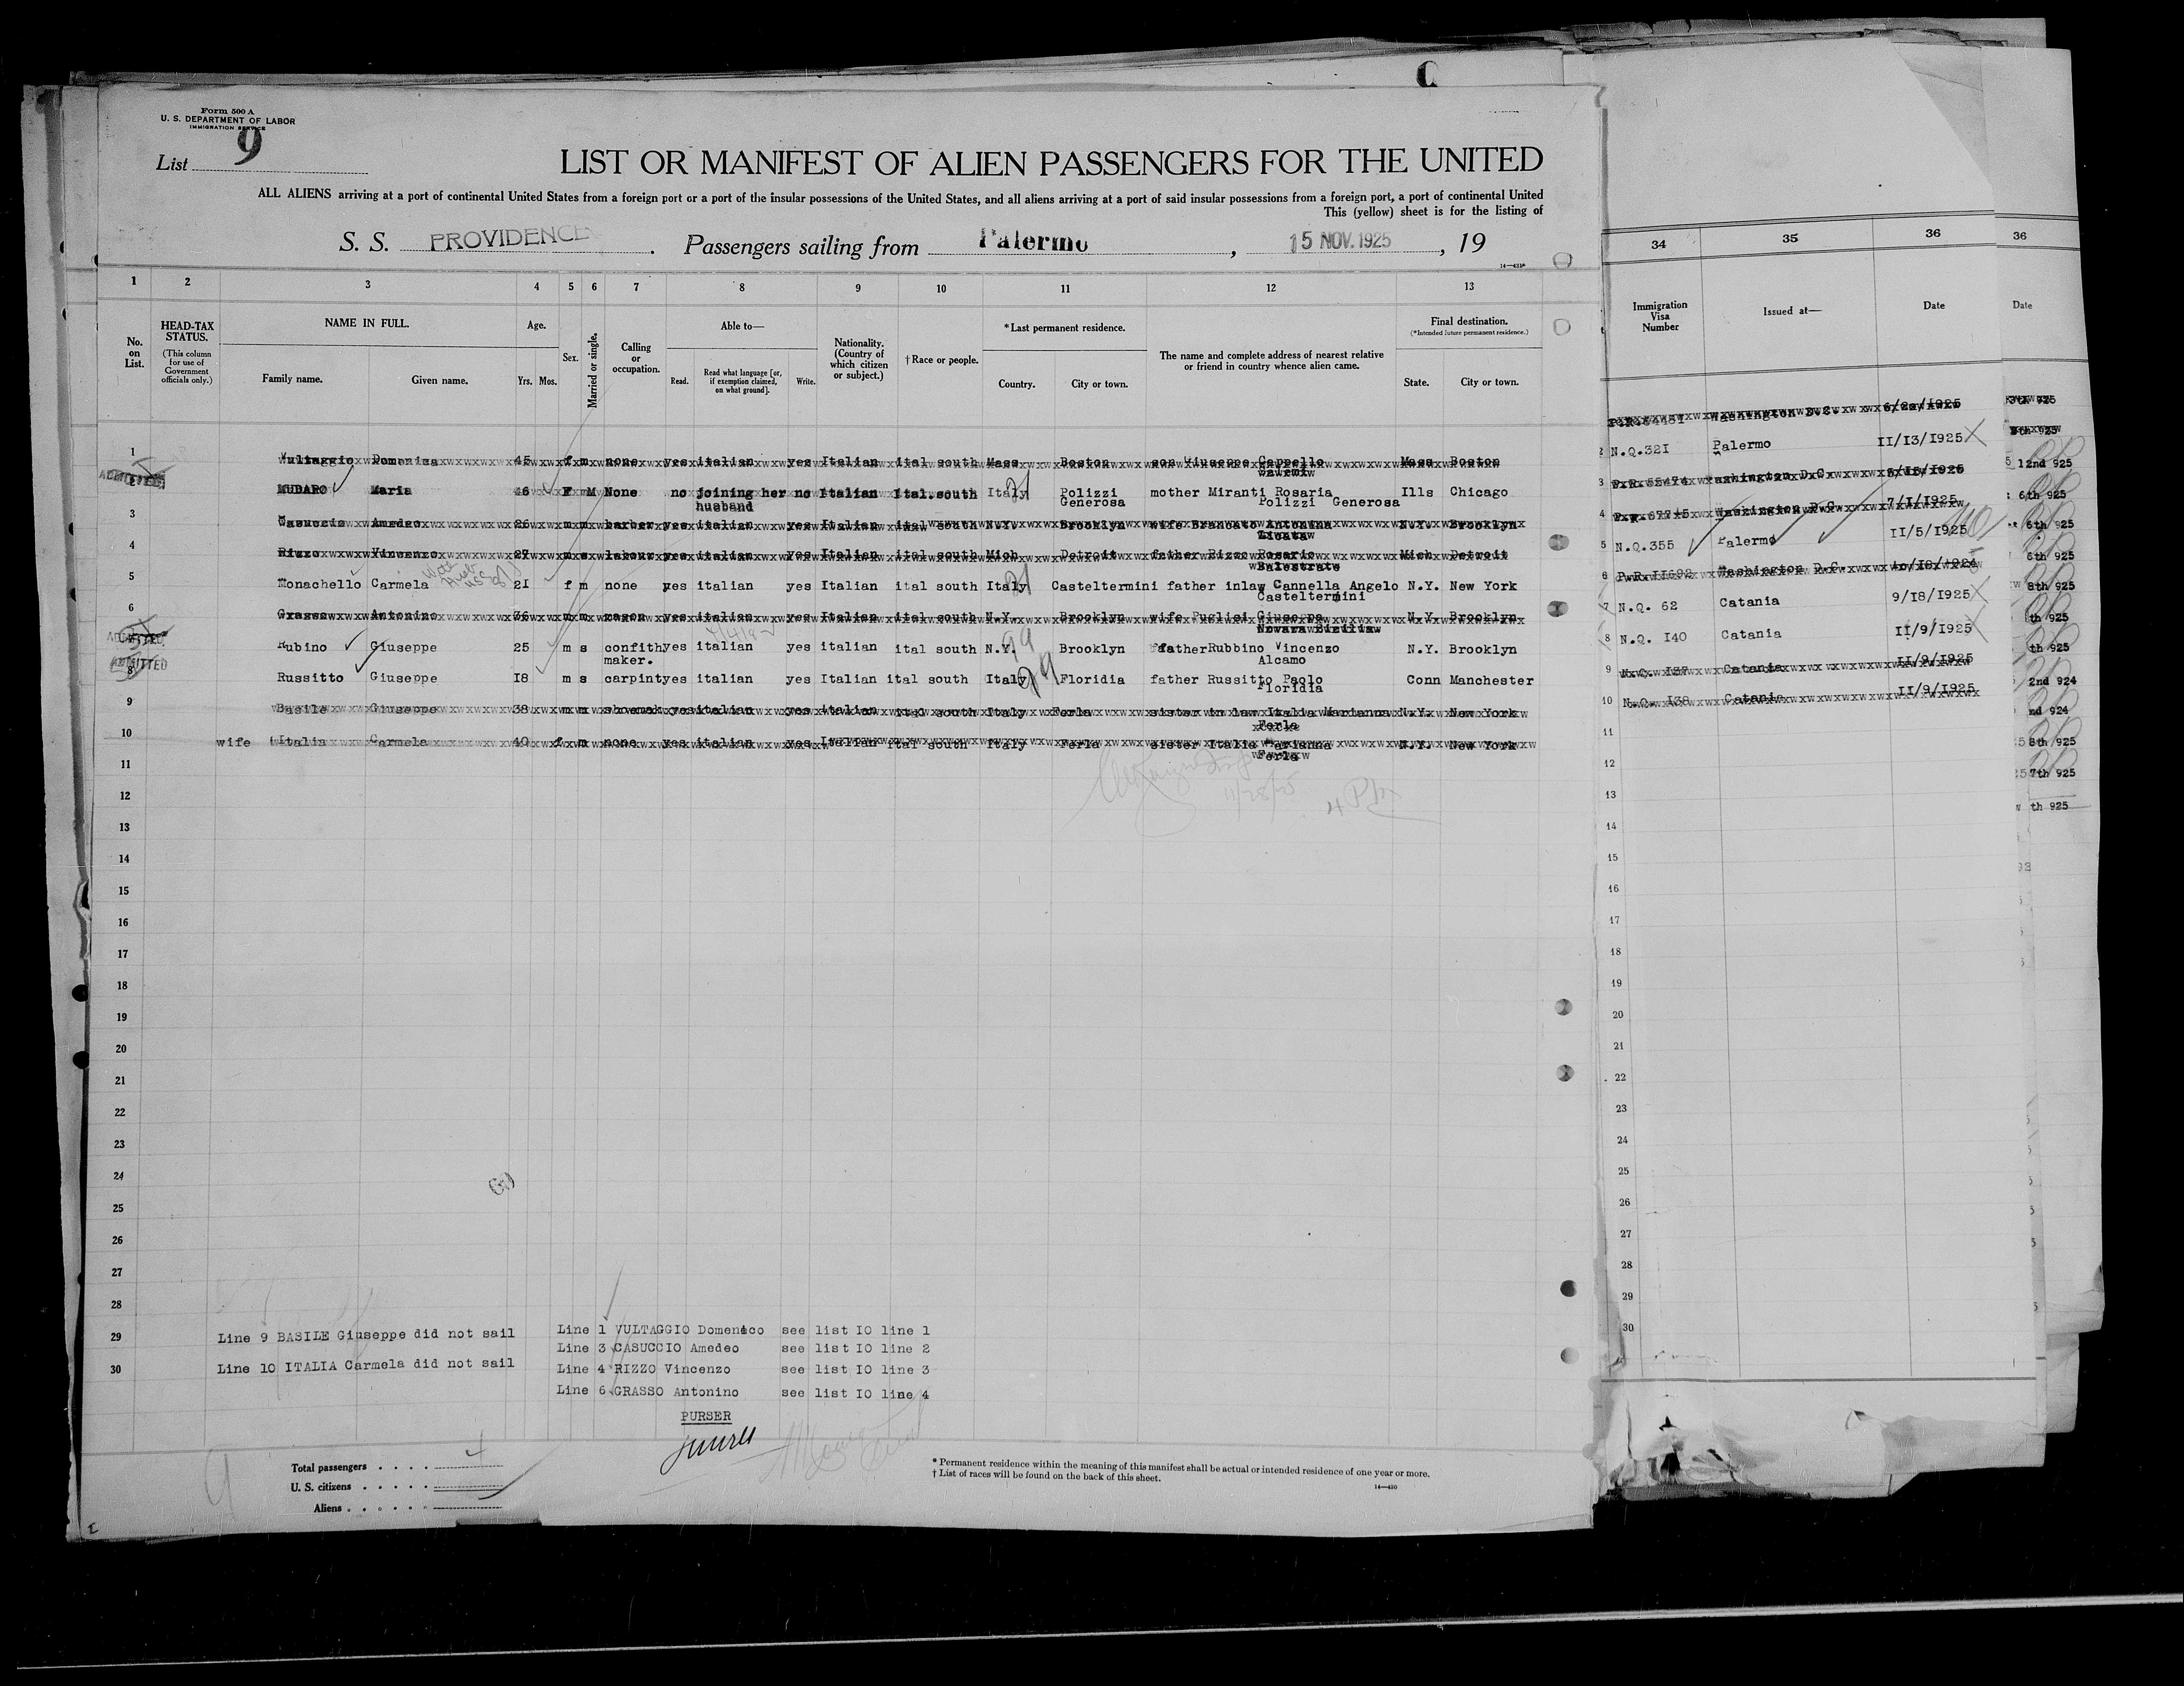 Form 500 A
U. S. DEPARTMENT OF LABOR
IMMIGRATION SERVICE
List 9
LIST OR MANIFEST OF ALIEN PASSENGERS FOR THE UNITED
ALL ALIENS arriving at a port of continental United States from a foreign port or a port of the insular possessions of the United States, and all aliens arriving at a port of said insular possessions from a foreign port, a port of continental United
This (yellow) sheet is for the listing of
S. S. PROVIDENCE. Passengers sailing from Palermo, 15 NOV. 1925, 19
1 2 3 4 5 6 7 8 9 10 11 12 13
No. on List.
HEAD-TAX STATUS. (This column for use of Government officials only.)
NAME IN FULL.
Family name. Given name.
Age. Yrs. Mos.
Sex.
Married or single.
Calling or occupation.
Able to—
Read. Read what language [or, if exemption claimed, on what ground]. Write.
Nationality. (Country of which citizen or subject.)
† Race or people.
* Last permanent residence.
Country. City or town.
The name and complete address of nearest relative or friend in country whence alien came.
Final destination.
(* Intended future permanent residence.)
State. City or town.
34 35 36
Immigration Visa Number Issued at— Date
1 Vultaggio Domenica 45 f m none yes italian yes Italian ital south Mass Boston son Giuseppe Cappello Mass Boston
MUDARO Maria 46 F M None no joining her husband no Italian Ital.south Italy Polizzi Generosa mother Miranti Rosaria Polizzi Generosa Ills Chicago
3 Casuccio Amedeo 26 m m barber yes italian yes Italian ital south N.Y. Brooklyn wife Brancato Antonina N.Y. Brooklyn
4 Rizzo Vincenzo 27 m s labour yes italian yes Italian ital south Mich Detroit father Rizzo Rosario Balestrate Mich Detroit
5 Monachello Carmela 21 f m none yes italian yes Italian ital south Italy Casteltermini father inlaw Cannella Angelo Casteltermini N.Y. New York
6 Grasso Antonino 36 m m mason yes italian yes Italian ital south N.Y. Brooklyn wife Pugliei Giuseppa Novara Sicilia N.Y. Brooklyn
ADMITTED Rubino Giuseppe 25 m s confith maker. yes italian yes italian ital south N.Y. Brooklyn father Rubbino Vincenzo Alcamo N.Y. Brooklyn
ADMITTED
8 Russitto Giuseppe 18 m s carpint yes italian yes Italian ital south Italy Floridia father Russitto Paolo Floridia Conn Manchester
9 Basile Giuseppe 38 m m shoemak yes italian yes italian ital south Italy Ferla sister in law Italia Marianna Ferla N.Y. New York
10 wife Italia Carmela 40 f m none yes italian yes Italian ital south Italy Ferla sister Italia Marianna Ferla N.Y. New York
11
12
13
14
15
16
17
18
19
20
21
22
23
24
25
26
27
28
29
30
11/28/25
Line 9 BASILE Giuseppe did not sail
Line 10 ITALIA Carmela did not sail
Line 1 VULTAGGIO Domenico see list IO line 1
Line 3 CASUCCIO Amedeo see list IO line 2
Line 4 RIZZO Vincenzo see list IO line 3
Line 6 GRASSO Antonino see list IO line 4
PURSER
Total passengers 4
U. S. citizens
Aliens
* Permanent residence within the meaning of this manifest shall be actual or intended residence of one year or more.
† List of races will be found on the back of this sheet.
14—430
Washington D.C.
2 N.Q.321 Palermo 11/13/1925
3 Washington D.C.
4 Washington D.C. 7/1/1925
5 N.Q.355 Palermo 11/5/1925
6 P.R.11692 Washington D.C.
7 N.Q. 62 Catania 9/18/1925
8 N.Q. 140 Catania 11/9/1925
9 N.Q. 137 Catania 11/9/1925
10 N.Q. 138 Catania 11/9/1925
11
12
13
14
15
16
17
18
19
20
21
22
23
24
25
26
27
28
29
30
36
Date
2nd 925
6th 925
6th 925
6th 925
8th 925
th 925
th 925
2nd 924
nd 924
8th 925
7th 925
th 925